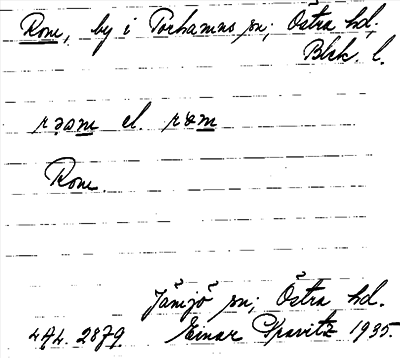 Rom, by i Torhamns sn; Östra hd,
Blek. l.
rɷm el. rɷm
Rom.
Jämjö sn; Östra hd.
4A4. 2879 Einar Kravitz 1935.